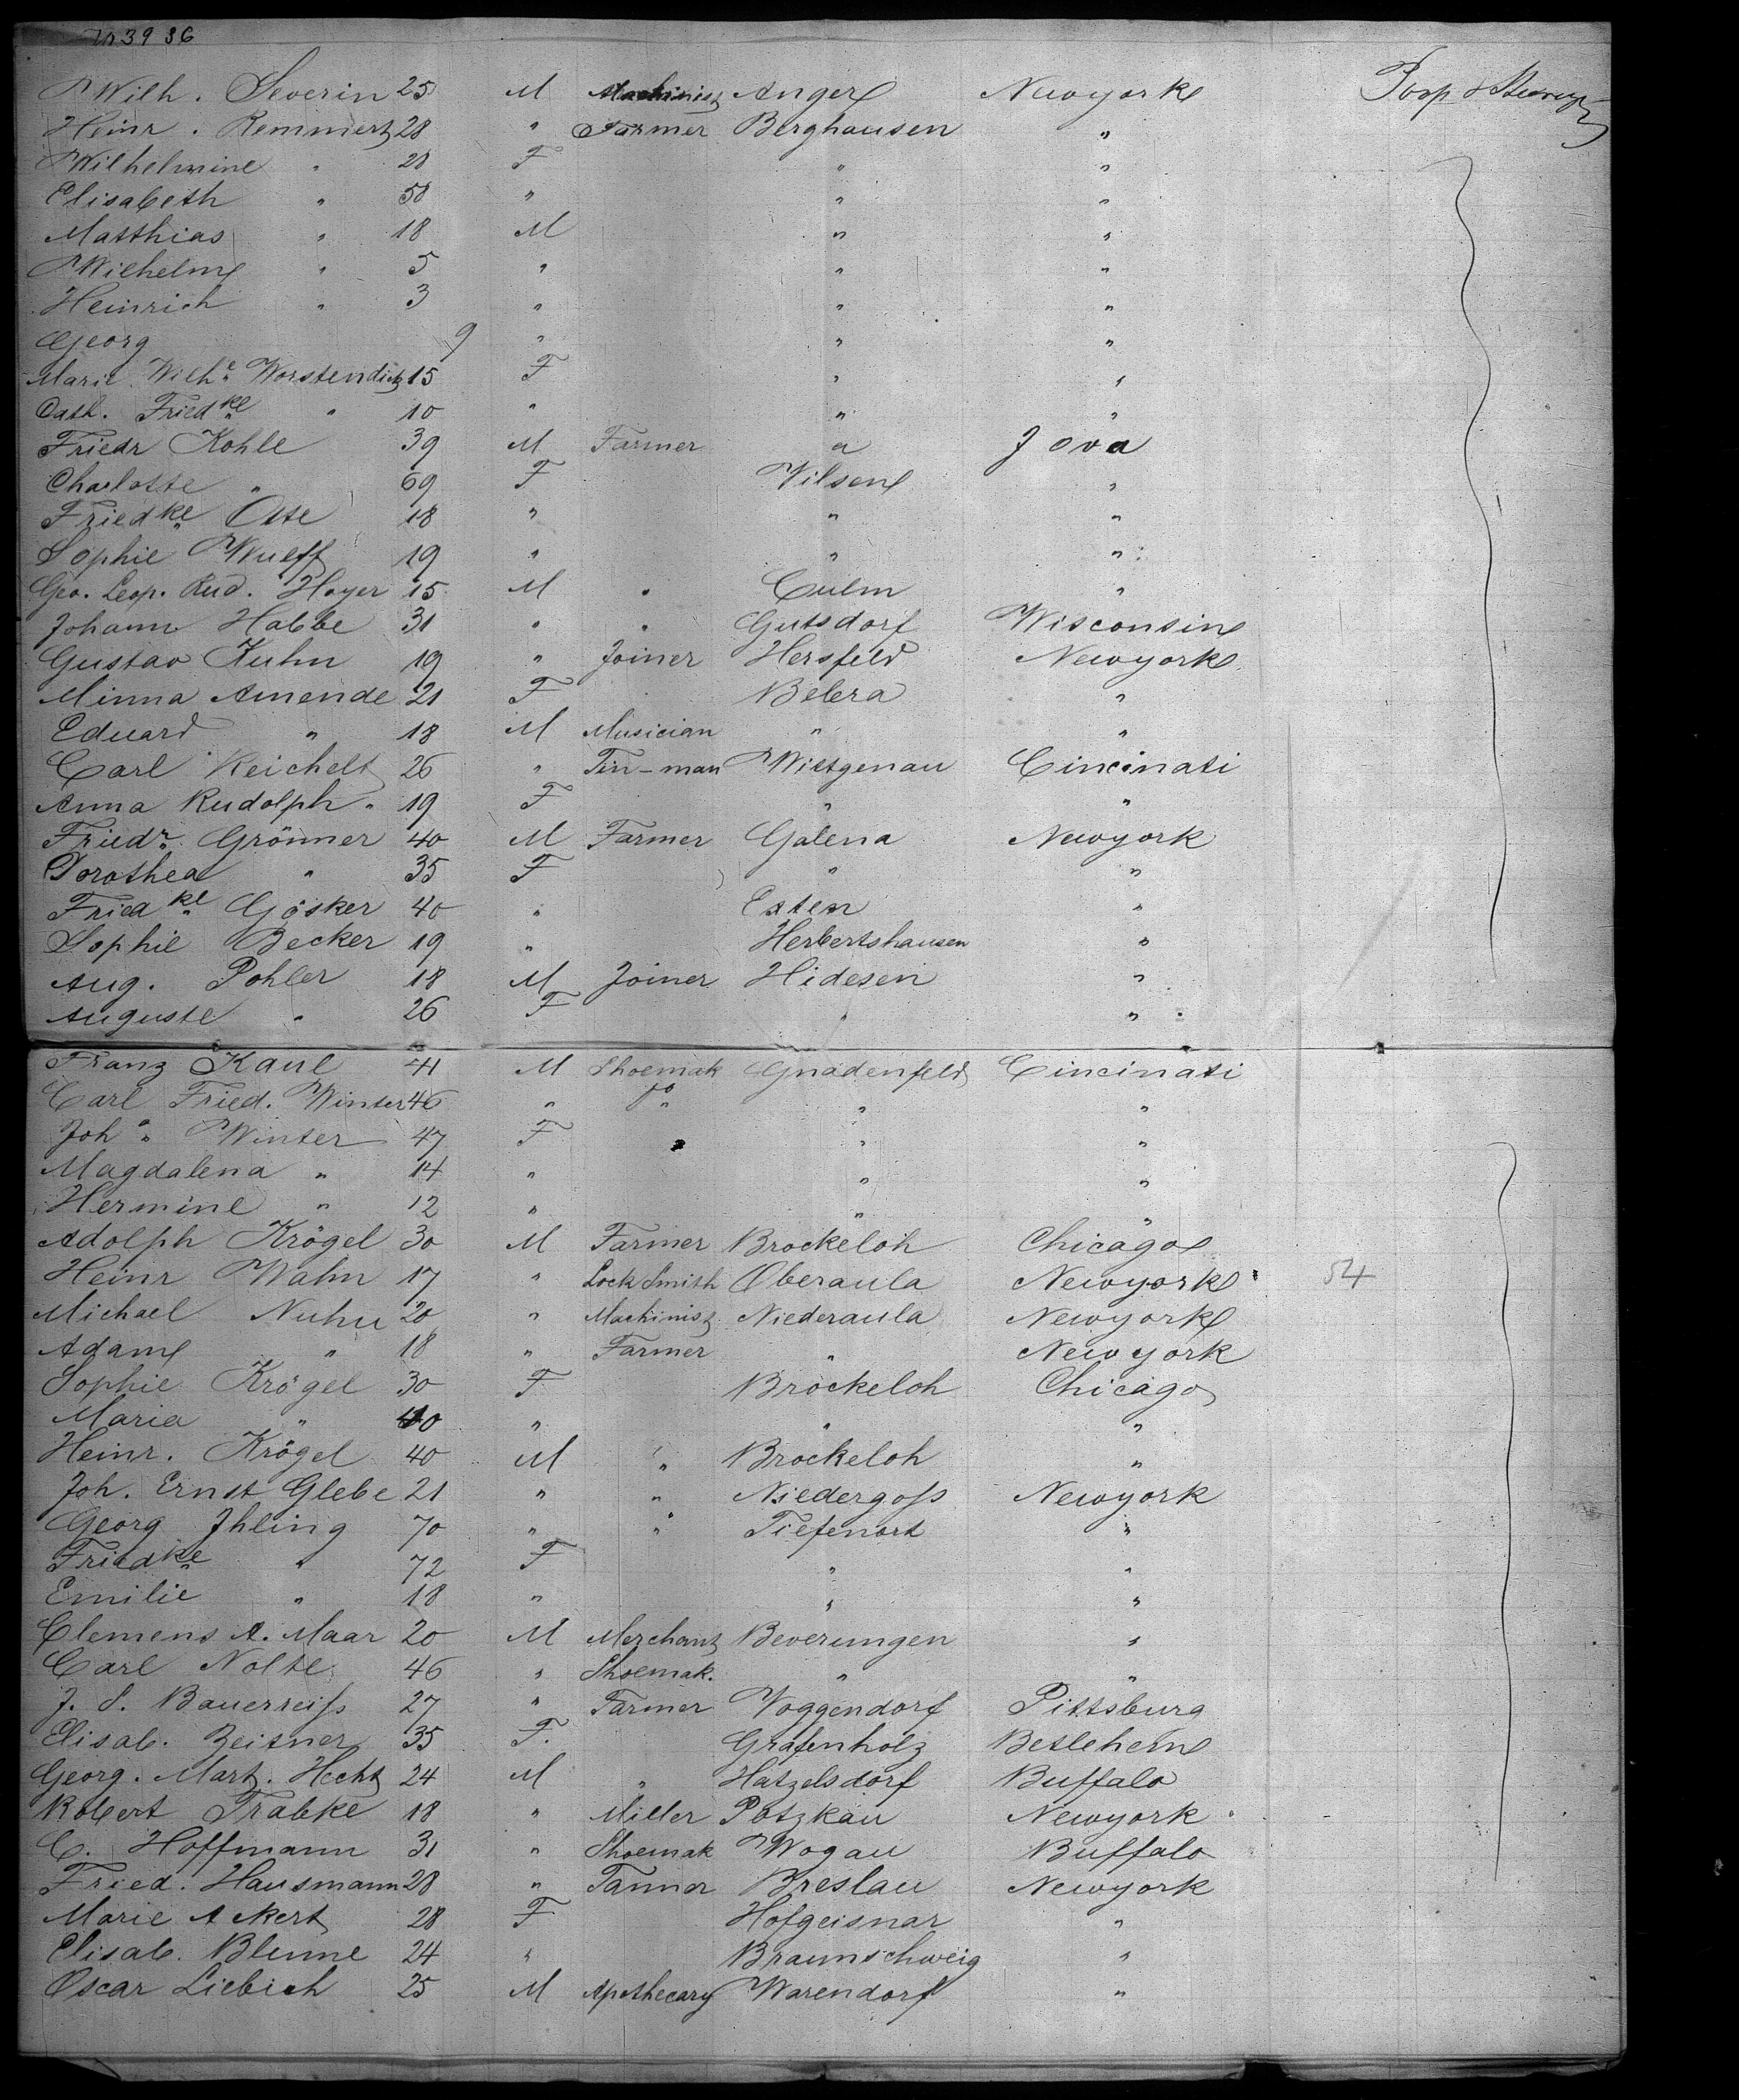 39 36
Wilh. Severin 25 M Machinist Anger Newyork
Heinr. Remmert 28 " Farmer Berghausen "
Wilhelmine " 28 F " "
Elisabeth " 58 " " "
Matthias " 18 M " "
Wilhelm " 5 " " "
Heinrich " 3 " " "
Georg 9 " " "
Marie Wilhe Worstendiek 15 F " "
Cath. Friedke " 10 " " "
Friedr Kohle 39 M Farmer a Jova
Charlotte " 69 F Vilsen "
Friedke Otte 18 " " "
Sophie Wulff 19 " " "
Geo. Leop. Rud. Hoyer 15 M " Culm "
Johann Habbe 31 " " Gutsdorf Wisconsin
Gustav Kuhn 19 " Joiner Hersfeld Newyork
Minna Amende 21 F Bebra "
Eduard " 18 M Musician " "
Carl Reichelt 26 " Tin-man Wittgenau Cincinati
Anna Rudolph " 19 F " "
Friedr. Grönner 40 M Farmer Galena Newyork
Dorothea " 35 F " "
Friedke Gösker 40 " Exten "
Sophie Becker 19 " Herbertshausen "
Aug. Pohler 18 M Joiner Hidesen "
Auguste " 26 F " "
Franz Kaul 41 M Shoemak Gnadenfeld Cincinati
Carl Fried. Winter 46 " Do " "
Joha Winter 47 F " "
Magdalena " 14 " " "
Hermine " 12 " " "
Adolph Krögel 30 M Farmer Brockeloh Chicago
Heinr Wahn 17 " Lock Smith Oberaula Newyork 54
Michael Nuhn 20 " Machinist Niederaula Newyork
Adam " 18 " Farmer " Newyork
Sophie Krögel 30 F Brockeloh Chicago
Maria " " " "
Heinr. Krögel 40 M " Brockeloh "
Joh. Ernst Glebe 21 " " Niedergoss Newyork
Georg Jhling 70 " " Tiefenort "
Friedke " 72 F " "
Emilie " 18 " " "
Clemens A. Maar 20 M Merchant Beverungen "
Carl Nolte 46 " Shoemak. " "
J. S. Bauerreiss 27 " Farmer Voggendorf Pittsburg
Elisab. Zeitner 35 F. Grafenholz Betlehem
Georg. Mart. Hecht 24 M " Hatzelsdorf Buffalo
Robert Trabke 18 " Miller Potzkau Newyork
C. Hoffmann 31 " Shoemak Wogau Buffalo
Fried. Hausmann 28 " Tanner Breslau Newyork
Marie Ackert 28 F Hofgeisnar "
Elisab. Blume 24 " Braunschweig "
Oscar Liebich 25 M Apothecary Warendorf "